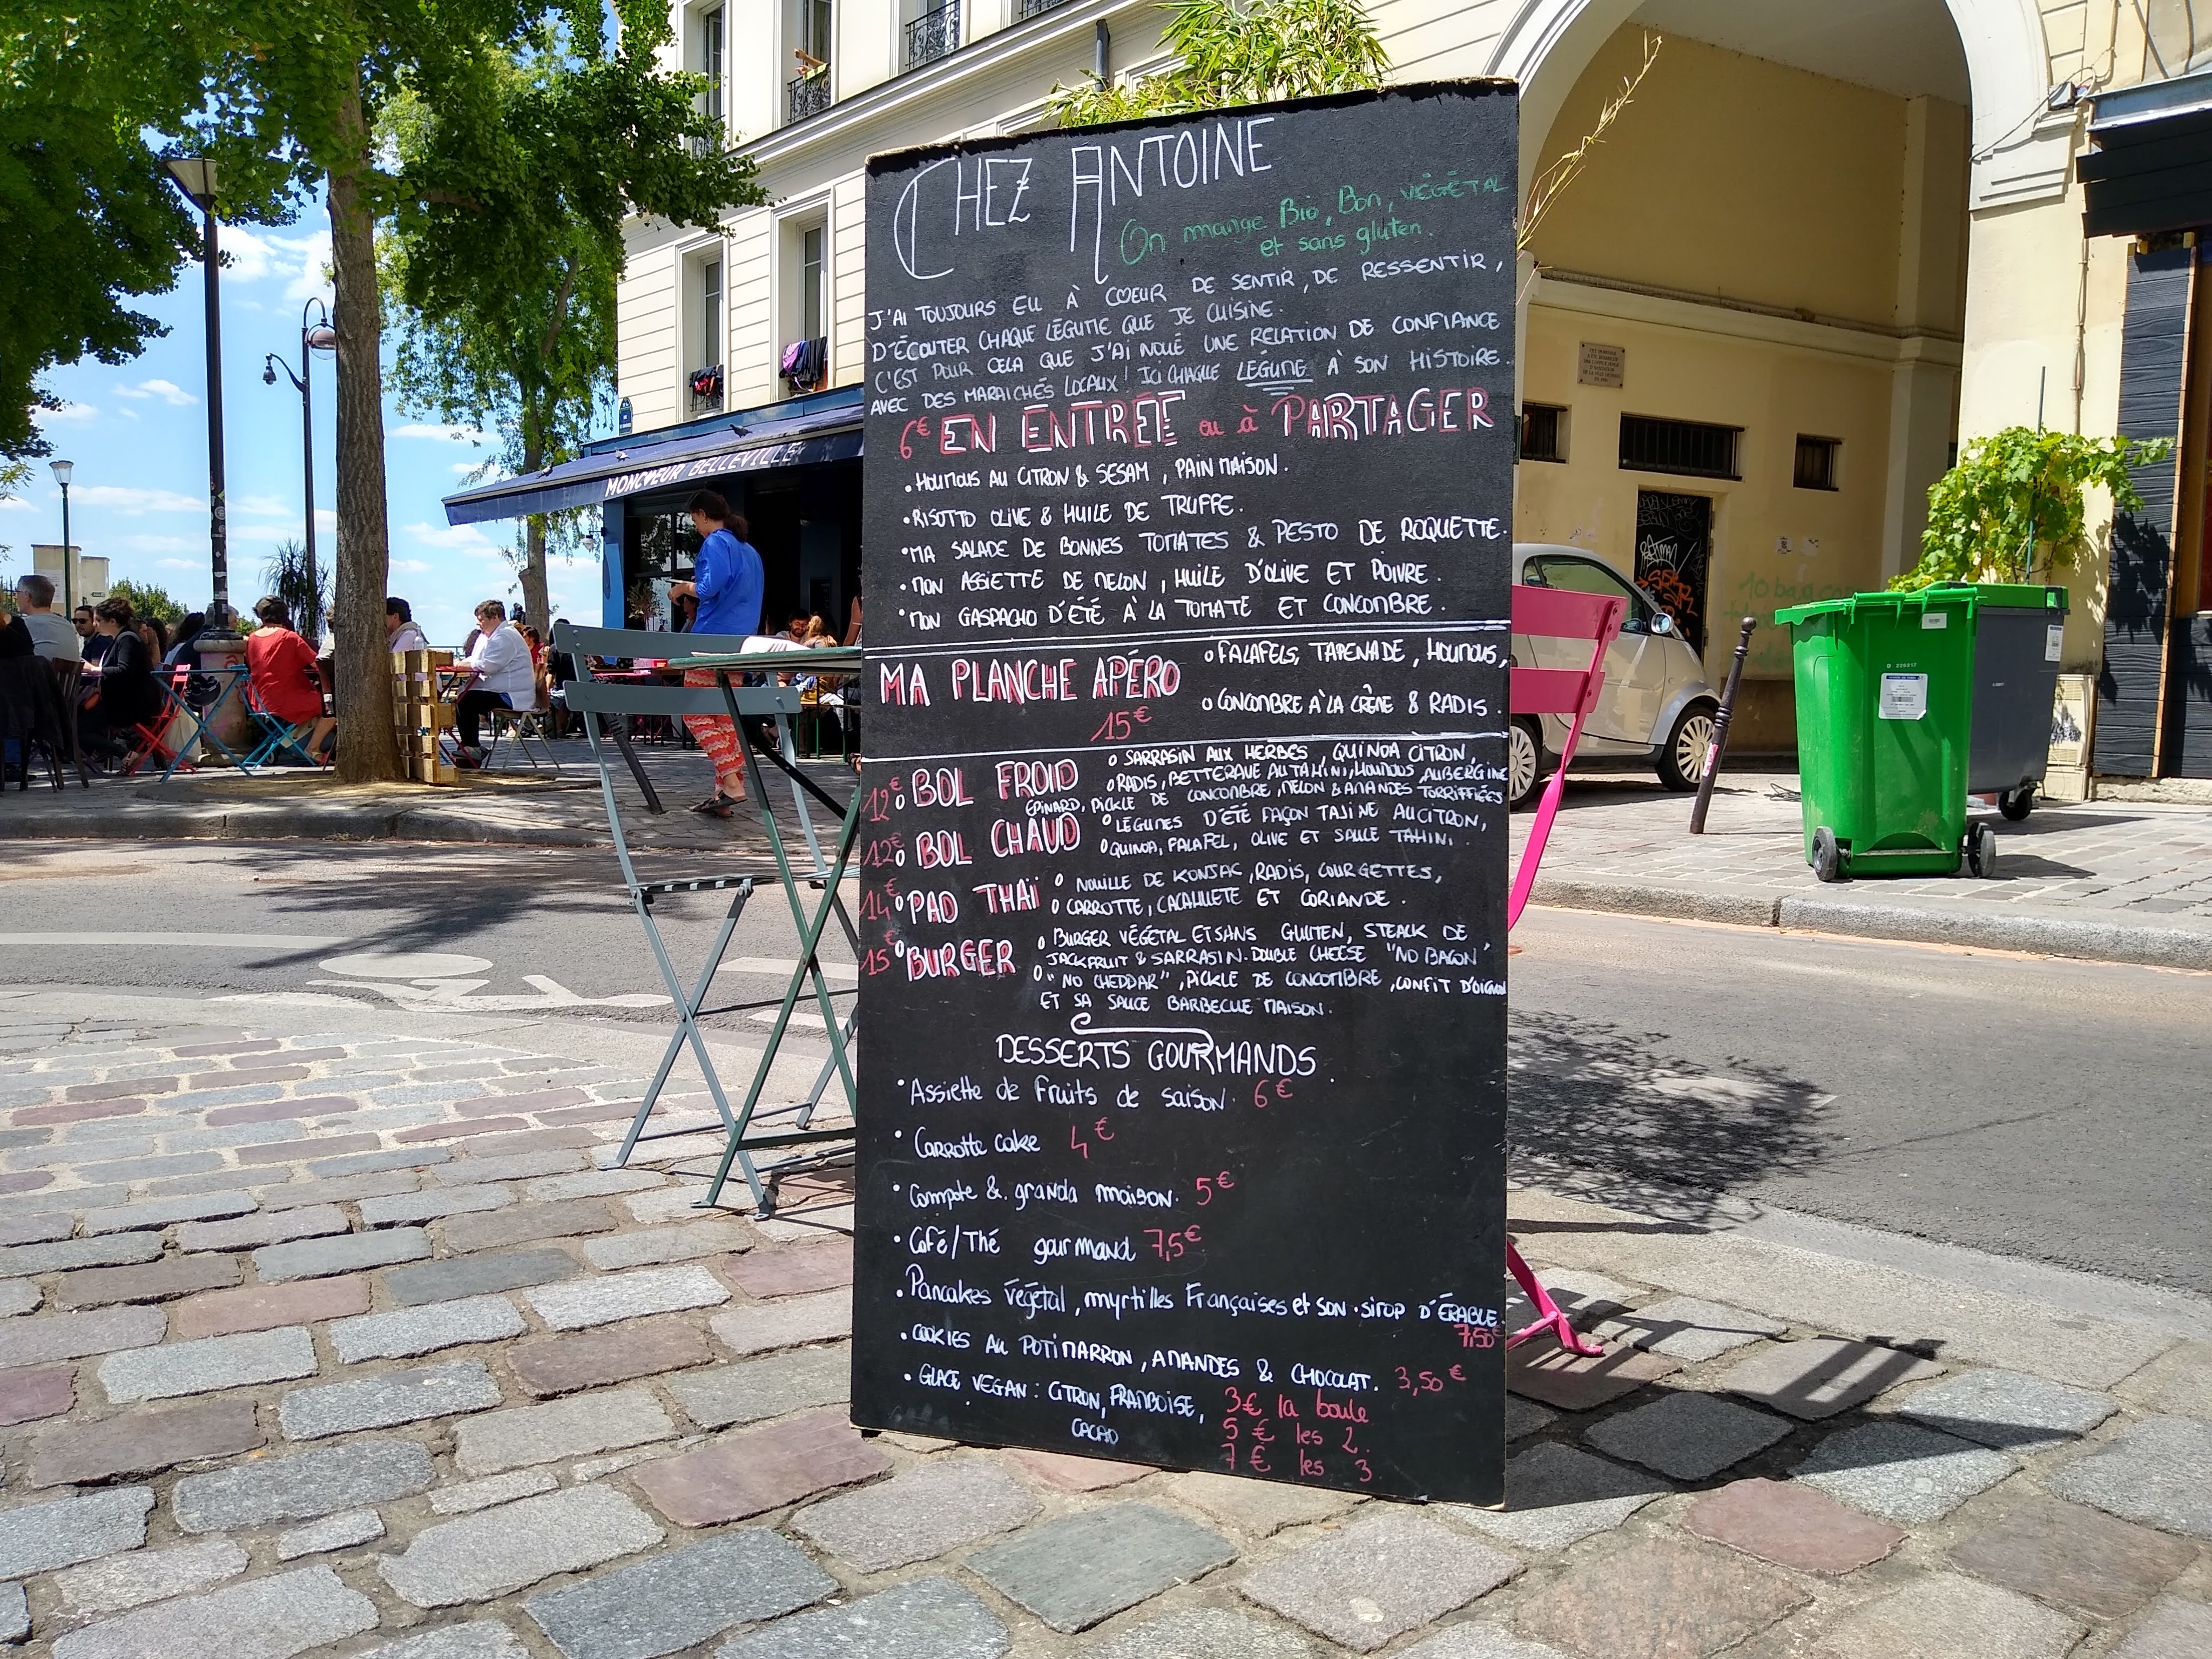 CHEZ ANTOINE
On mange Bio, Bon, VÉGÉTAL
et sans gluten.
J'AI TOUJOURS EU À COEUR DE SENTIR, DE RESSENTIR,
D'ÉCOUTER CHAQUE LÉGUME QUE JE CUISINE.
C'EST POUR CELA QUE J'AI NOUÉ UNE RELATION DE CONFIANCE
AVEC DES MARAICHÉS LOCAUX! ICI CHAQUE LÉGUME À SON HISTOIRE.
6€ EN ENTRÉE ou à PARTAGER
• HOUMOUS AU CITRON & SESAM, PAIN MAISON.
• RISOTTO OLIVE & HUILE DE TRUFFE.
• MA SALADE DE BONNES TOMATES & PESTO DE ROQUETTE.
• MON ASSIETTE DE MELON, HUILE D'OLIVE ET POIVRE.
• MON GASPACHO D'ÉTÉ À LA TOMATE ET CONCOMBRE.
MA PLANCHE APÉRO
15€
o FALAFELS, TAPENADE, HOUMOUS,
o CONCOMBRE À LA CRÈME & RADIS.
12€ o BOL FROID
o SARRASIN AUX HERBES, QUINOA CITRON,
o RADIS, BETTERAVE AU TAHINI, HOUMOUS, AUBERGINE
ÉPINARD, PICKLE DE CONCOMBRE, MELON & AMANDES TORRIFIÉES
12€ o BOL CHAUD
o LÉGUMES D'ÉTÉ FAÇON TAJINE AU CITRON,
o QUINOA, FALAFEL, OLIVE ET SAUCE TAHINI.
14€ o PAD THAÏ
o NOUILLE DE KONJAC, RADIS, COURGETTES,
o CARROTTE, CACAHUETE ET CORIANDE.
15€ o BURGER
o BURGER VÉGÉTAL ET SANS GLUTEN, STEACK DE
JACKFRUIT & SARRASIN. DOUBLE CHEESE "NO BACON"
o "NO CHEDDAR", PICKLE DE CONCOMBRE, CONFIT D'OIGNON
ET SA SAUCE BARBECUE MAISON.
DESSERTS GOURMANDS.
• Assiette de fruits de saison. 6€
• Carrotte cake 4€
• Compote & granola maison. 5€
• Café/Thé gourmand 7,5€
• Pancakes végétal, myrtilles Françaises et son sirop D'ÉRABLE.
7,50€
• COOKIES AU POTIMARRON, AMANDES & CHOCOLAT. 3,50€
• GLACE VEGAN: CITRON, FRAMBOISE,
CACAO
3€ la boule
5€ les 2.
7€ les 3.
MONCŒUR BELLEVILLE